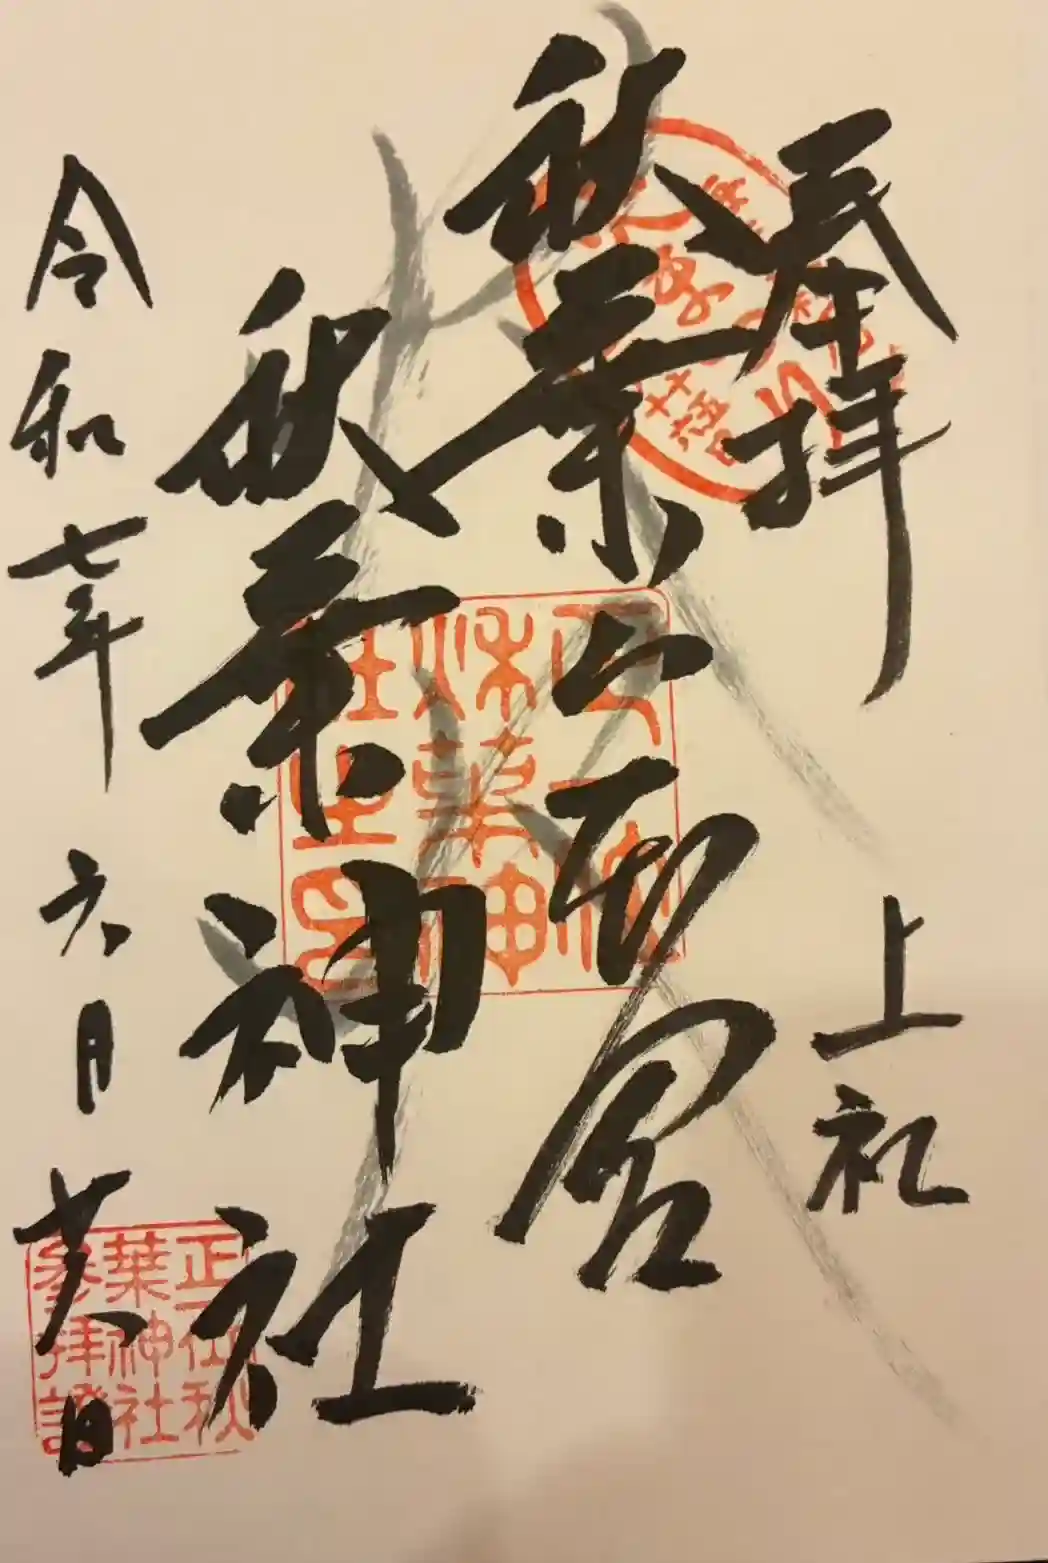 奉拝
上社
秋葉山本宮
秋葉神社
令和七年六月廿八日
正一位秋
葉神社
参拝證
正一位
秋葉神
社之印